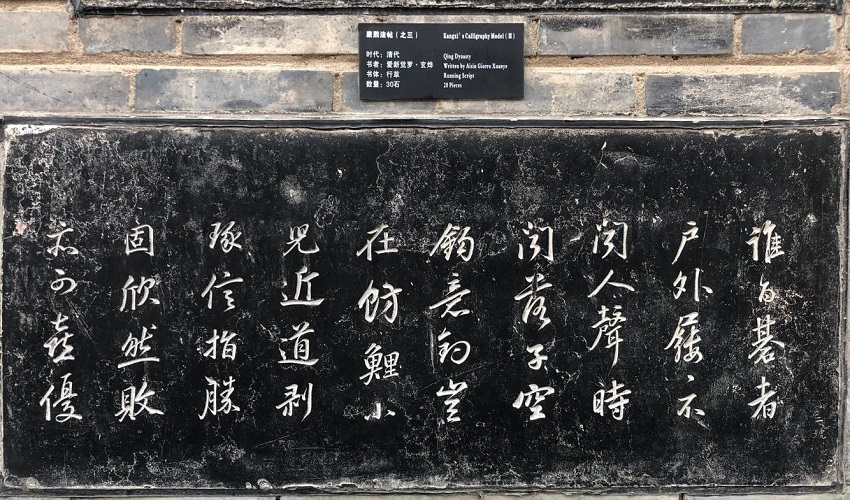 康熙法帖（之三）
Kangxi's Calligraphy Model (Ⅲ)
时代：清代
Qing Dynasty
书者：爱新觉罗·玄烨
Written by Aisin Giorro Xuanye
书体：行草
Running Script
数量：30石
28 Pieces
誰与碁者
户外屨不
聞人聲時
聞落子空
鉤意釣豈
在魴鯉小
兒近道剥
琢信指勝
固欣然敗
亦可喜優